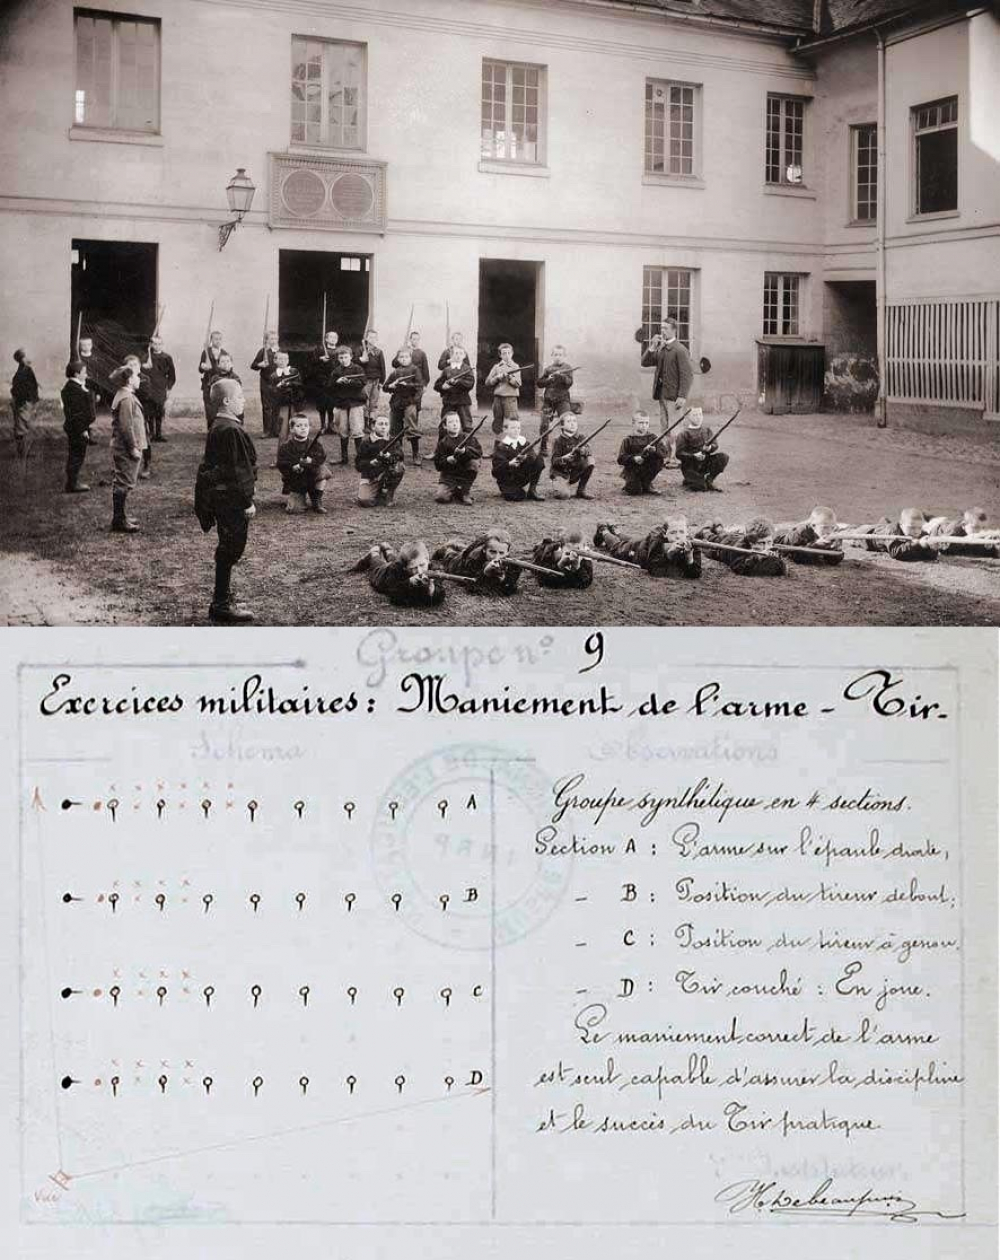 Groupe n° 9
Exercices militaires : Maniement de l'arme - Tir.
Schéma
Observations
A
B
C
D
Groupe synthétique en 4 sections.
Section A : L'arme sur l'épaule droite,
- B : Position du tireur debout;
- C : Position du tireur à genou.
- D : Tir couché : En joue.
Le maniement correct de l'arme
est seul capable d'assurer la discipline
et le succès du Tir pratique.